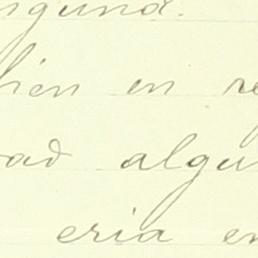 guna.
bien en re
ad algu
eria en